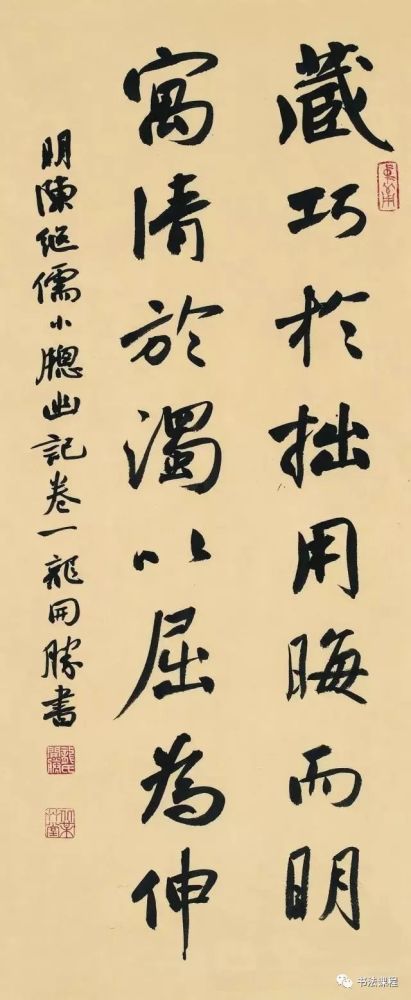 藏巧於拙用晦而明
寓清於濁以屈為伸
明陳继儒小牕幽記卷一龍開勝書
书法课程